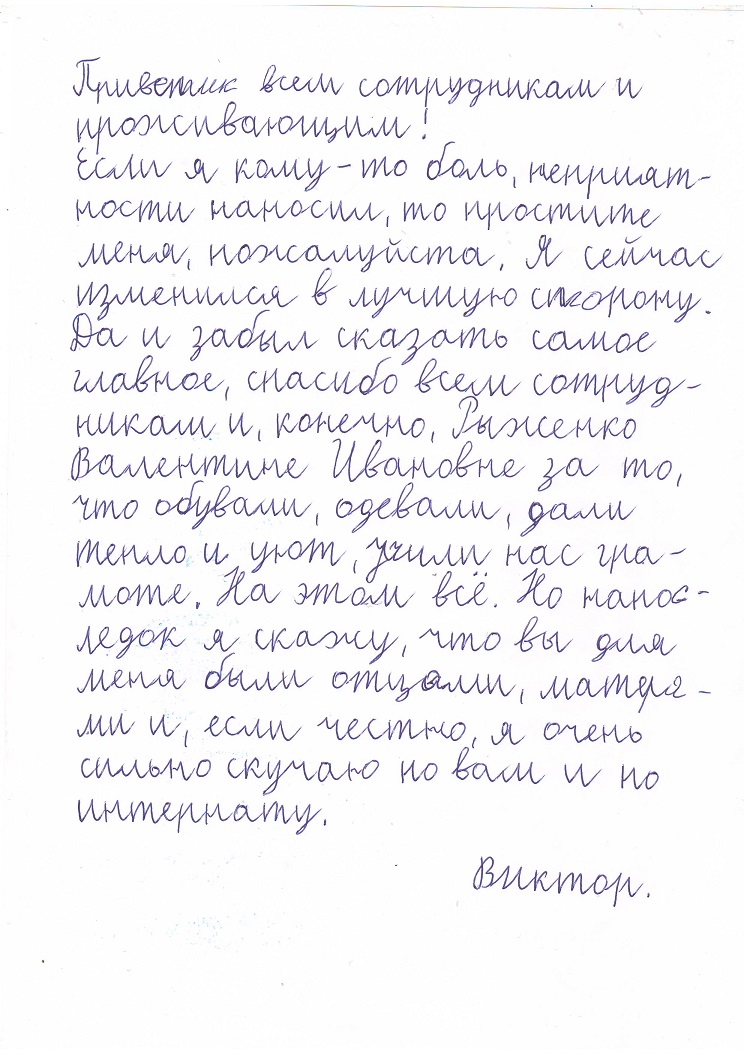 Приветик всем сотрудникам и
проживающим!
Если я кому-то боль, неприят-
ности наносил, то простите
меня, пожалуйста. Я сейчас
изменился в лучшую сторону.
Да и забыл сказать самое
главное, спасибо всем сотруд-
никам и, конечно, Рыженко
Валентине Ивановне за то,
что обували, одевали, дали
тепло и уют, учили нас гра-
моте. На этом всё. Но напос-
ледок я скажу, что вы для
меня были отцами, матеря-
ми и, если честно, я очень
сильно скучаю по вам и по
интернату.
Виктор.